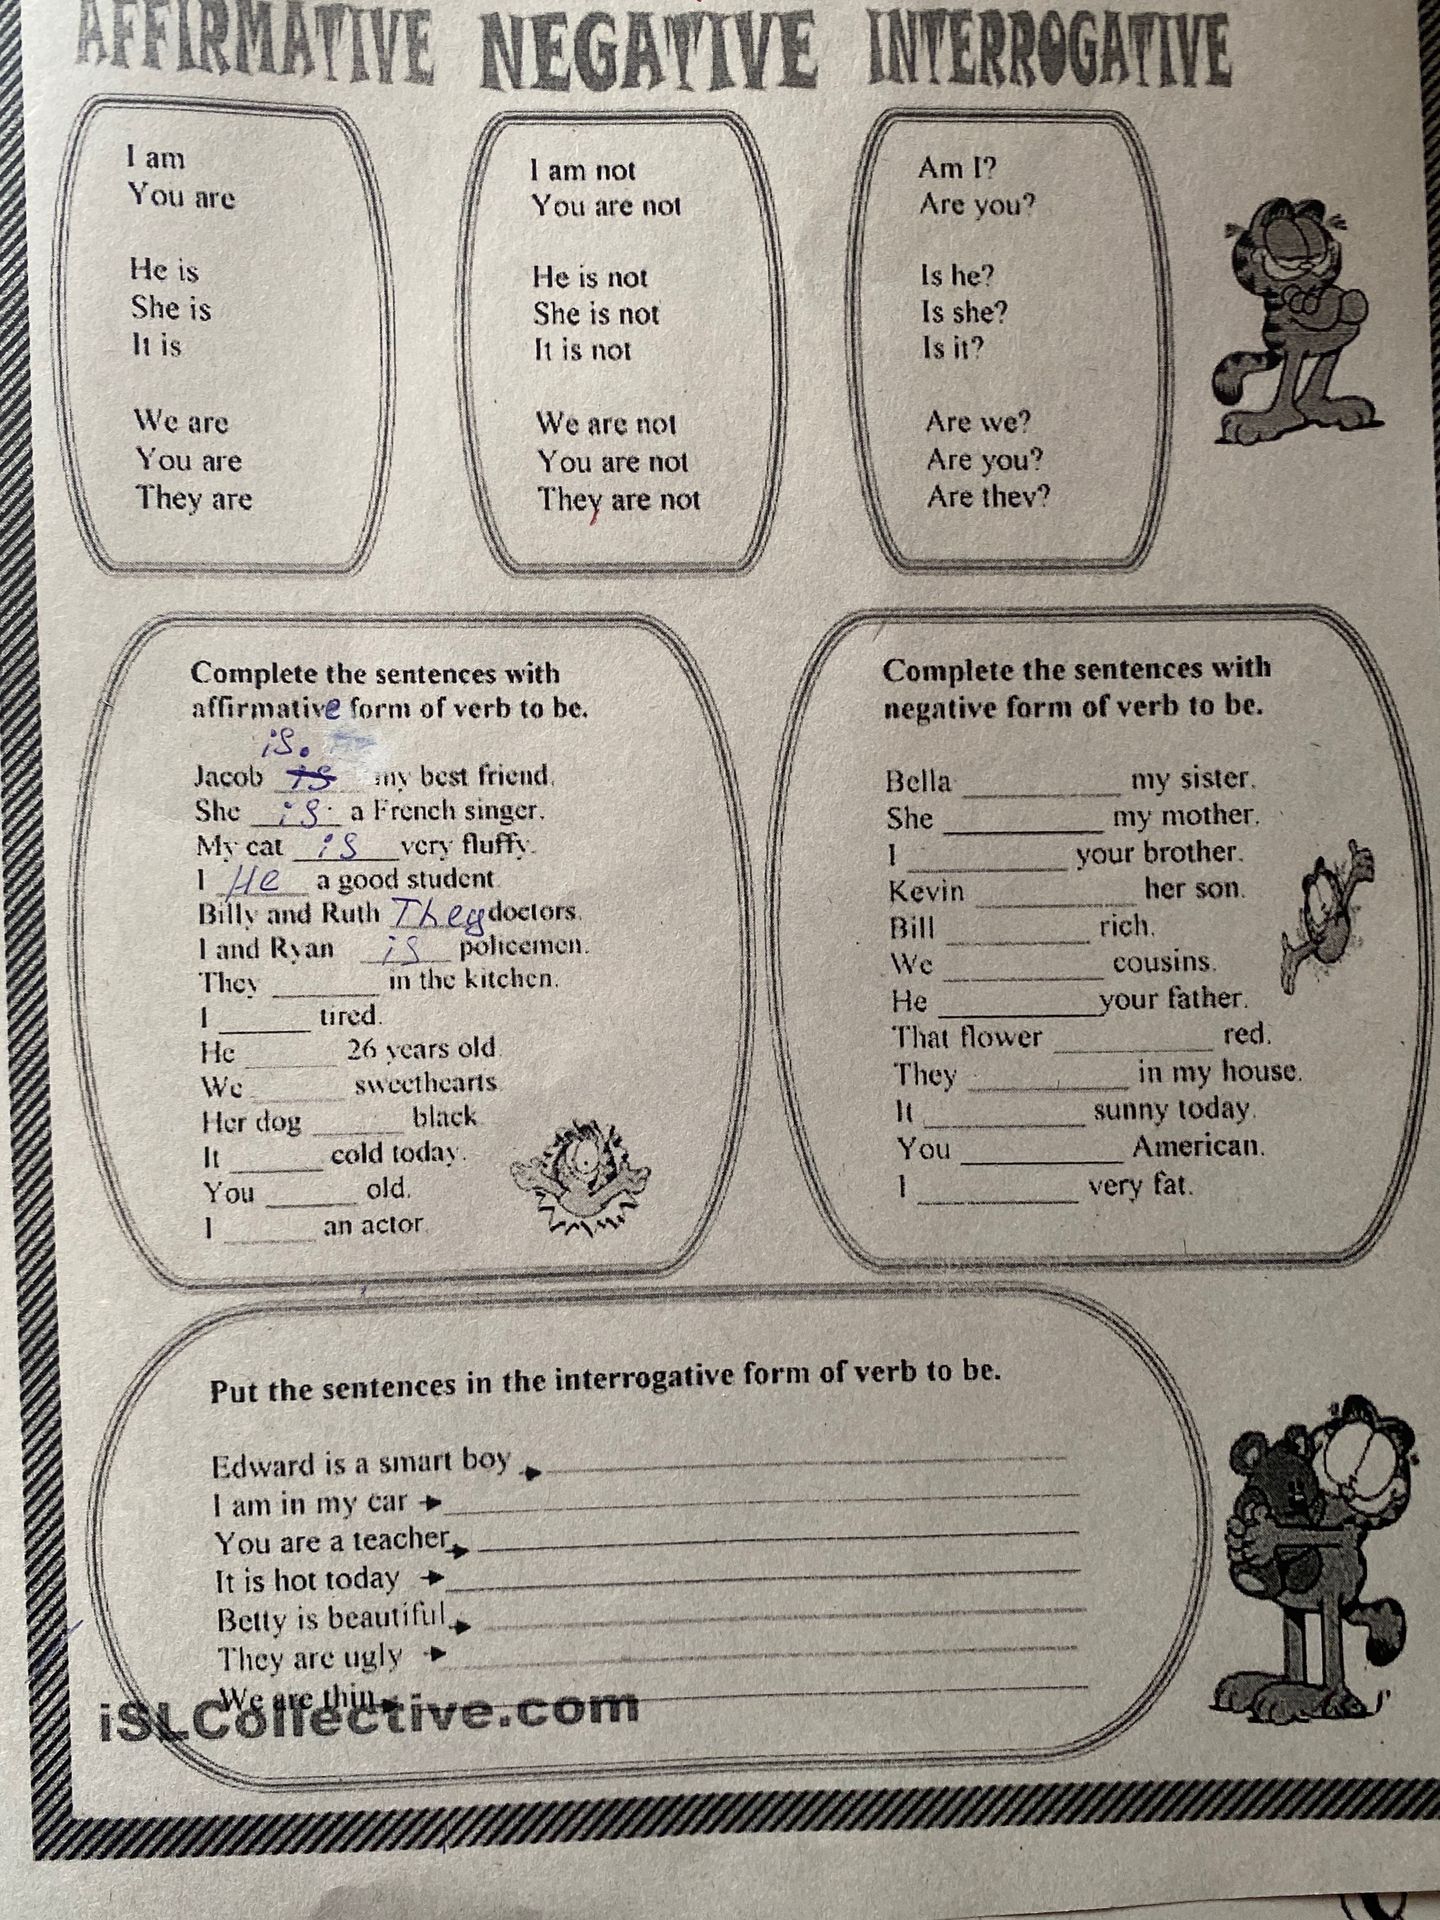 AFFIRMATIVE NEGATIVE INTERROGATIVE
I am
You are
He is
She is
It is
We are
You are
They are
I am not
You are not
He is not
She is not
It is not
We are not
You are not
They are not
Am I?
Are you?
Is he?
Is she?
Is it?
Are we?
Are you?
Are they?
Complete the sentences with
affirmative form of verb to be.
is.
Jacob is my best friend.
She is a French singer.
My cat is very fluffy.
I He a good student.
Billy and Ruth They doctors.
I and Ryan is policemen.
They ______ in the kitchen.
I ______ tired.
He ______ 26 years old.
We ______ sweethearts.
Her dog ______ black.
It ______ cold today.
You ______ old.
I ______ an actor.
Complete the sentences with
negative form of verb to be.
Bella __________ my sister.
She __________ my mother.
I __________ your brother.
Kevin __________ her son.
Bill __________ rich.
We __________ cousins.
He __________ your father.
That flower __________ red.
They __________ in my house.
It __________ sunny today.
You __________ American.
I __________ very fat.
Put the sentences in the interrogative form of verb to be.
Edward is a smart boy → ______________________
I am in my car → ______________________
You are a teacher → ______________________
It is hot today → ______________________
Betty is beautiful → ______________________
They are ugly → ______________________
We are thin → ______________________
iSLCollective.com